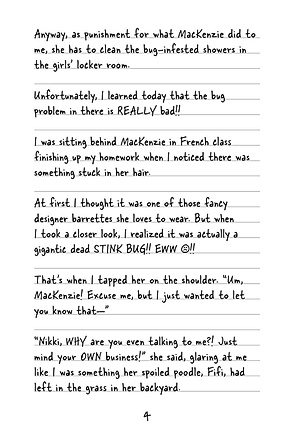 Anyway, as punishment for what MacKenzie did to
me, she has to clean the bug-infested showers in
the girls' locker room.
Unfortunately, I learned today that the bug
problem in there is REALLY bad!!
I was sitting behind MacKenzie in French class
finishing up my homework when I noticed there was
something stuck in her hair.
At first I thought it was one of those fancy
designer barrettes she loves to wear. But when
I took a closer look, I realized it was actually a
gigantic dead STINK BUG!! EWW ☹!!
That's when I tapped her on the shoulder. "Um,
MacKenzie! Excuse me, but I just wanted to let
you know that—"
"Nikki, WHY are you even talking to me?! Just
mind your OWN business!" she said, glaring at me
like I was something her spoiled poodle, Fifi, had
left in the grass in her backyard.
4